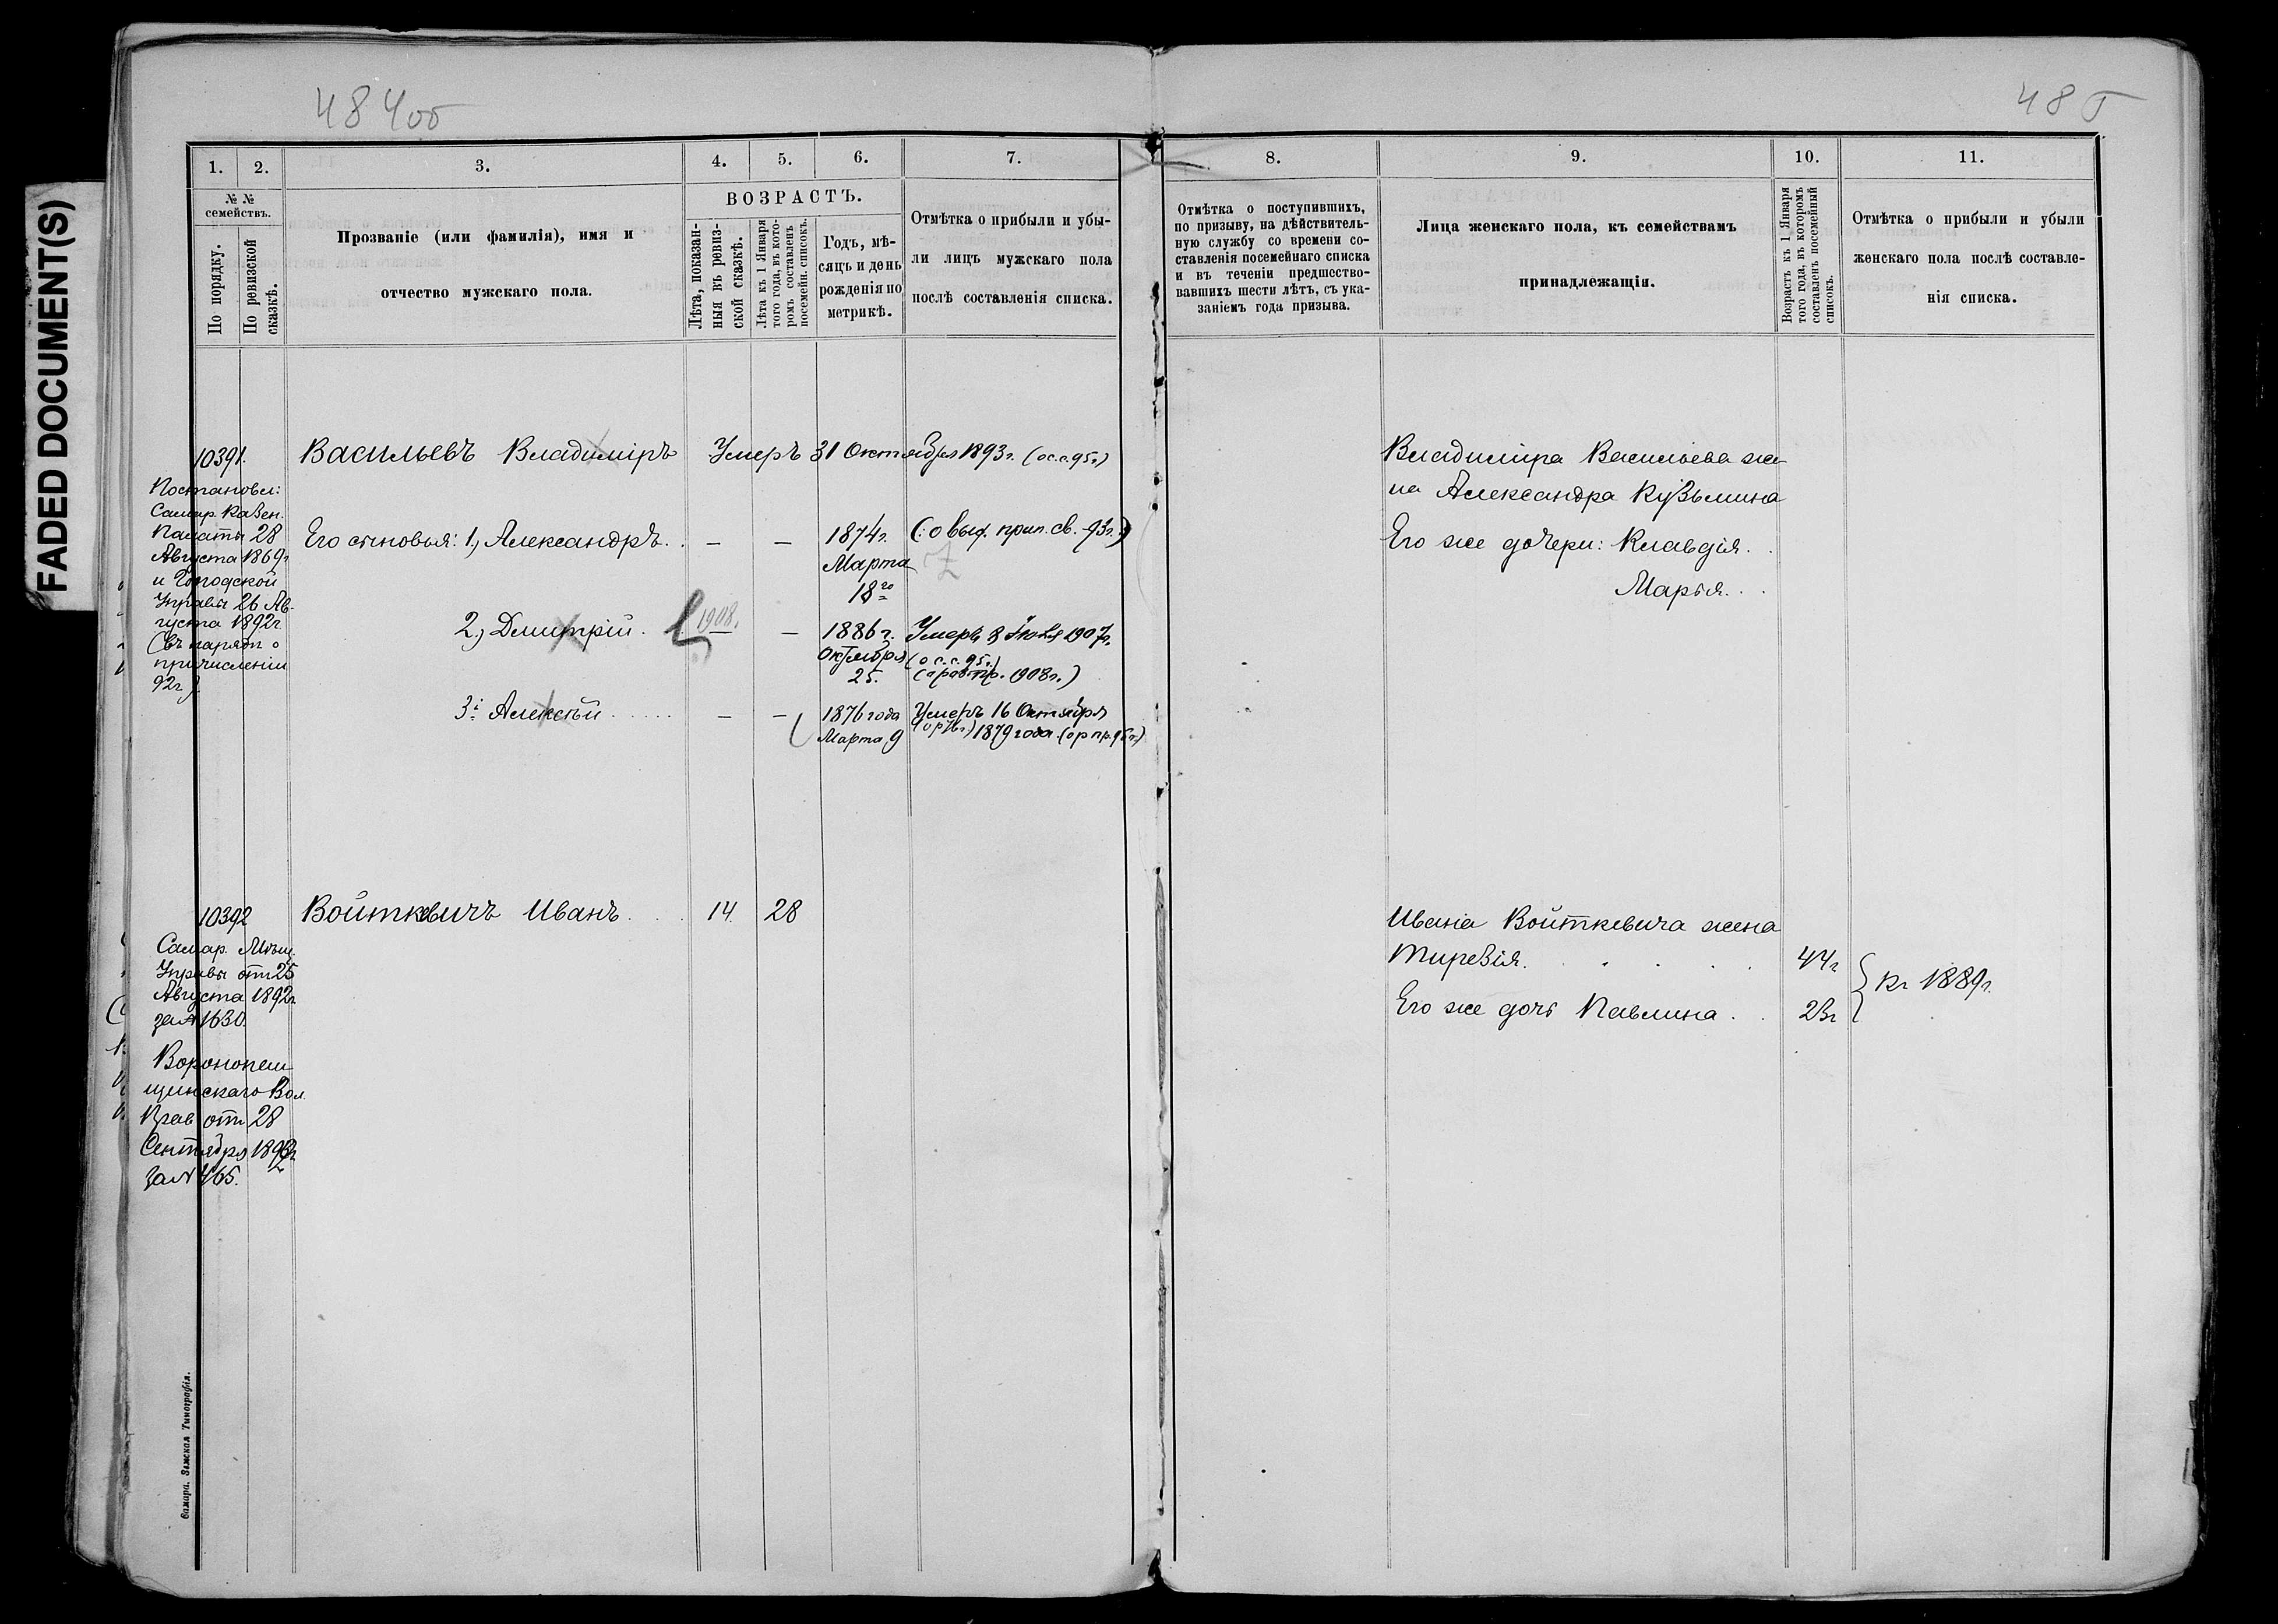 FADED DOCUMENT(S)
484об
485
1.
2.
3.
4.
5.
6.
7.
№ №
семействъ.
По порядку.
По ревизской
сказкѣ.
Прозваніе (или фамилія), имя и
отчество мужскаго пола.
ВОЗРАСТЪ.
Лѣта, показан-
ныя въ ревиз-
ской сказкѣ.
Лѣта къ 1 Января
того года, въ кото-
ромъ составленъ
посемейн. списокъ.
Годъ, мѣ-
сяцъ и день
рожденія по
метрикѣ.
Отмѣтка о прибыли и убы-
ли лицъ мужскаго пола
послѣ составленія списка.
10391.
Постановл:
Самар. Казен.
Палаты 28
Августа 1869г
и Городской
Управы 26 Ав-
густа 1892г
(въ нарядѣ о
причисленіи
92г.)
Васильевъ Владиміръ
Умеръ 31 Октября 1893г. (ос.с.95г.)
Его сыновья: 1, Александръ. . — — 1874г. (: о выд. прип. св. 93г.)
Марта
18го
2, Дмитрій. 1908. — 1886г. Умеръ 8 Іюля 1907г.
Октября (о с.с. 95г.)
25. 1908г.)
3й Алексѣй . . . . . — — 1876 года Умеръ 16 Октября
Марта 9 1879 года
10392
Самар. Мѣщ.
Управы отъ 25
Августа 1892г.
за № 1630.
щинскаго Вол.
Прав отъ 28
Сентября 1892г
за № 465.
Войткевичъ Иванъ. . . . 14. 28
Самара. Земская Типографія.
8.
9.
10.
11.
Отмѣтка о поступившихъ,
по призыву, на дѣйствитель-
ную службу со времени со-
ставленія посемейнаго списка
и въ теченіи предшество-
вавшихъ шести лѣтъ, съ ука-
заніемъ года призыва.
Лица женскаго пола, къ семействамъ
принадлежащія.
Возрастъ къ 1 Января
того года, въ которомъ
составленъ посемейный
списокъ.
Отмѣтка о прибыли и убыли
женскаго пола послѣ составле-
нія списка.
Владиміра Васильева же-
на Александра Кузьмина
Его же дочери: Клавдія. .
Марья. . .
Ивана Войткевича жена
Тирезія. . . . . 44г
Его же дочь Павлина . . 23г
къ 1889г.